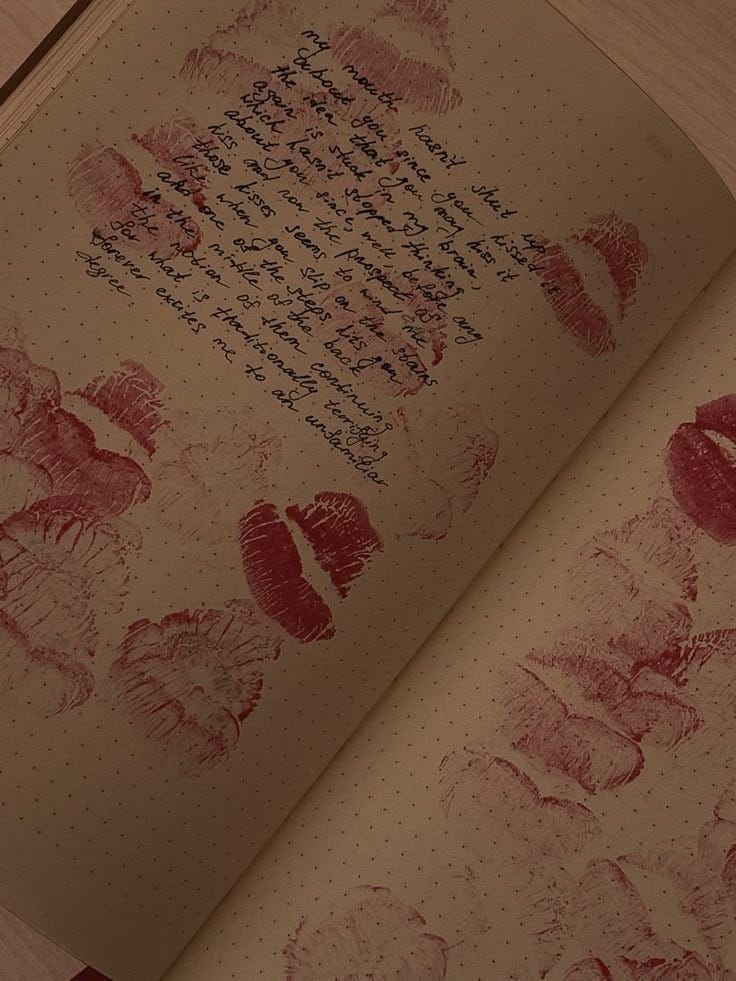 my mouth hasn't shut up
about you since you kissed it
the idea that you may kiss it
again is stuck in my brain,
which hasn't stopped thinking
about you since, well before any
kiss and now the prospect of
those kisses seems to wind me
like when you slip on the stairs
and one of the steps hits you
in the middle of the back
the notion of them continuing
for what is traditionally terrifying
forever excites me to an unfamiliar
degree.